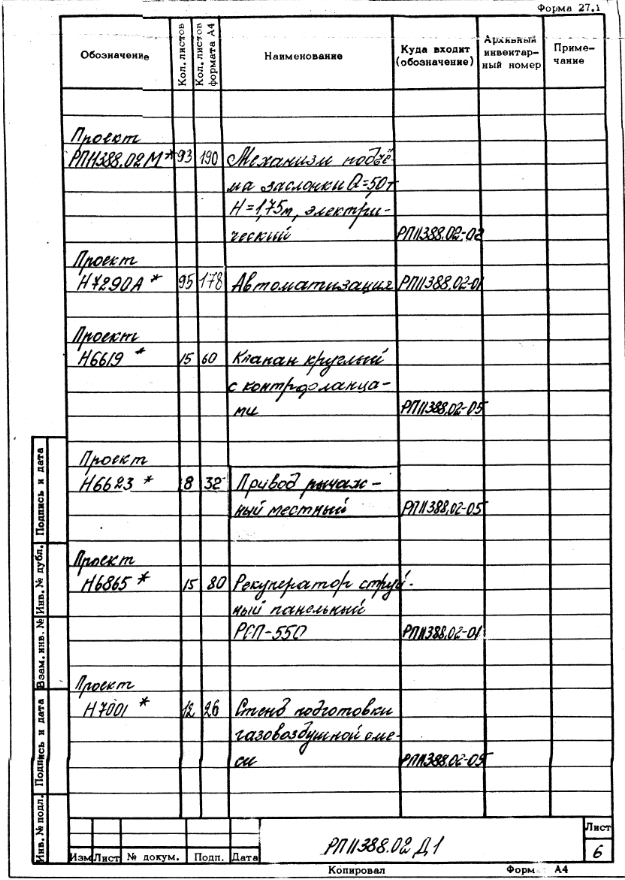 Форма 27.1
Обозначение Кол. листов Кол. листов формата А4 Наименование Куда входит (обозначение) Архивный инвентарный номер Примечание
Проект
РП11388.02М* 93 190 Механизм подъё
ма заслонки Q=50т
H=1,75м, электри-
ческий РП11388.02-02
Проект
Н7290А* 95 178 Автоматизация РП11388.02-01
Проект
Н6619 * 15 60 Клапан круглый
с контрфланца-
ми РП11388.02-05
Проект
Н6623 * 8 32 Привод рычаж-
ный местный РП11388.02-05
Проект
Н6865 * 15 80 Рекуператор струй-
ный панельный
РСП-550 РП11388.02-01
Проект
Н7001 * 12 26 Стенд подготовки
газовоздушной сме-
си РП11388.02-05
Инв. № подл. Подпись и дата Взам. инв. № Инв. № дубл. Подпись и дата
Изм Лист № докум. Подп. Дата
РП11388.02 Д1
Лист
6
Копировал Форм А4